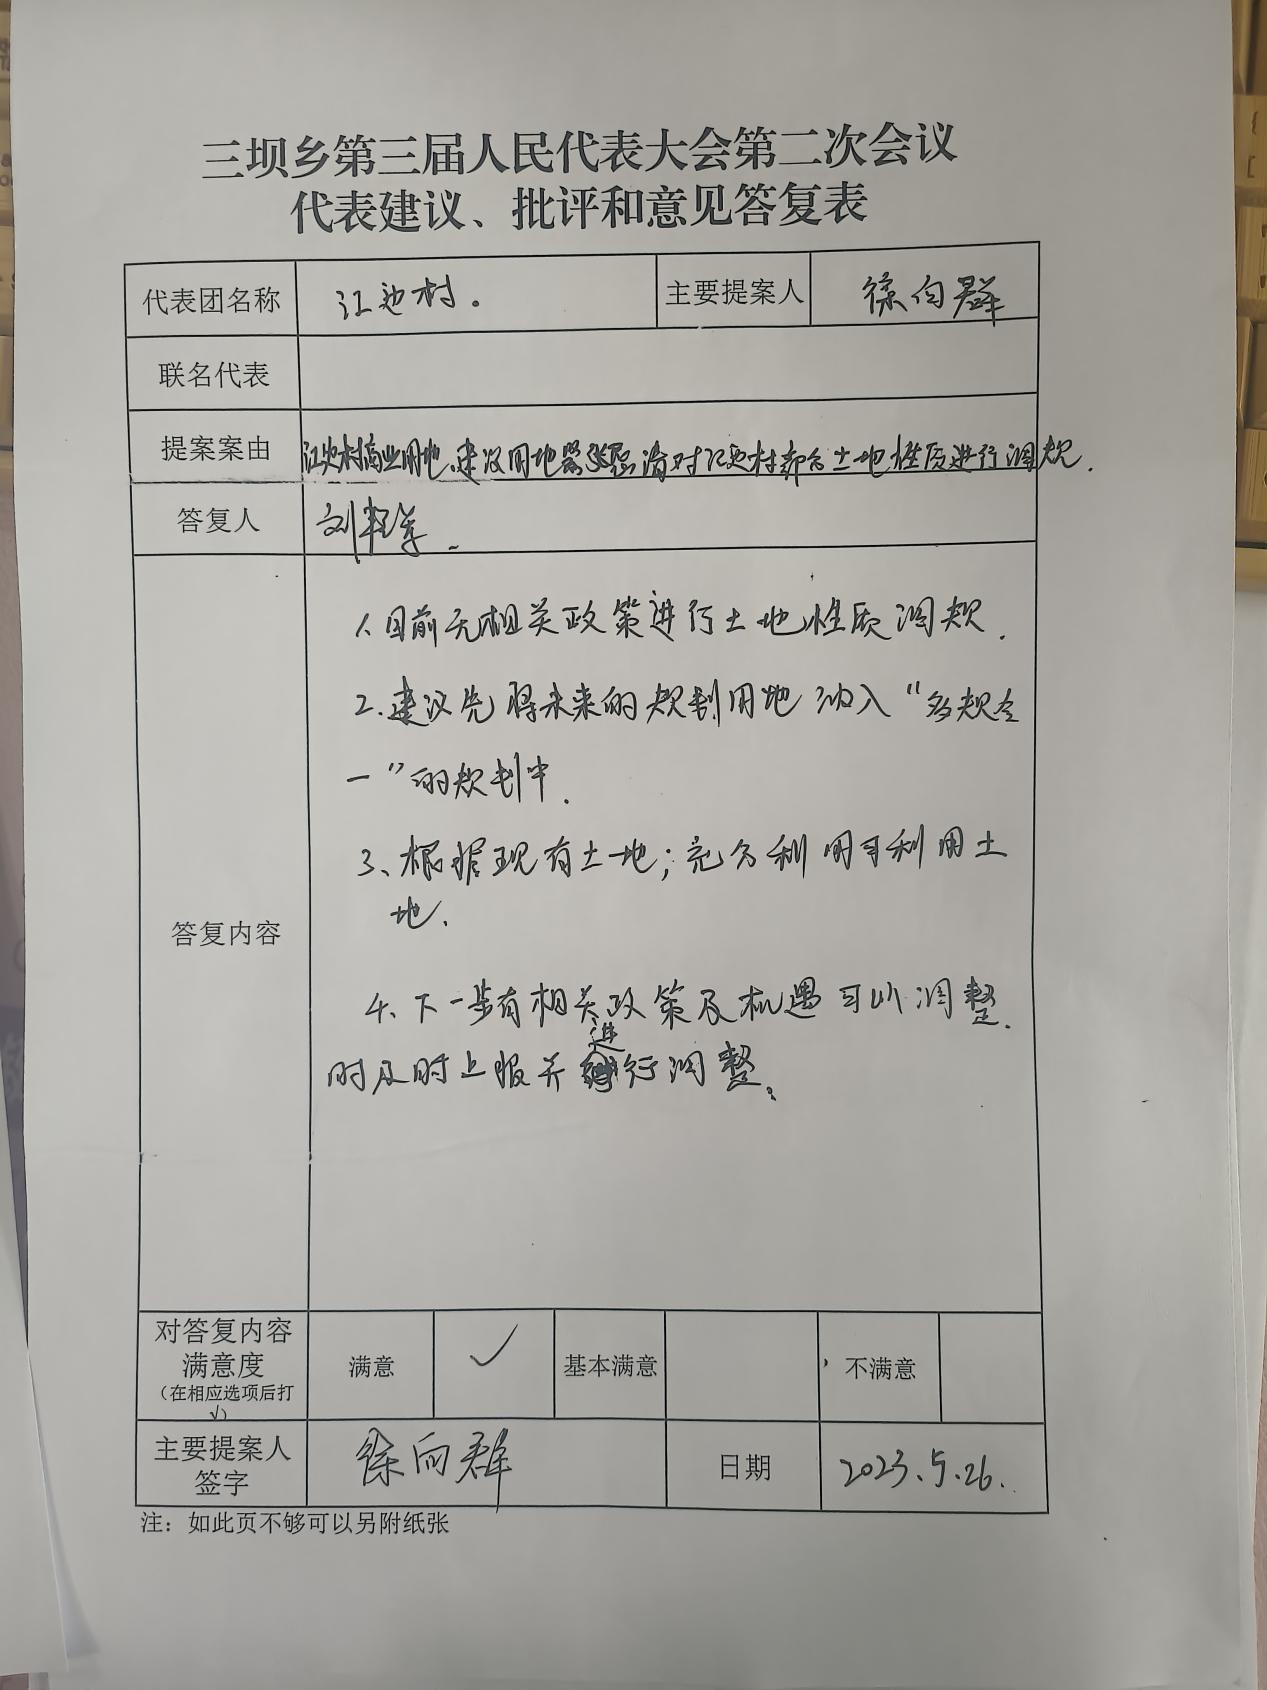 三坝乡第三届人民代表大会第二次会议
代表建议、批评和意见答复表
代表团名称 江边村. 主要提案人 徐向群
联名代表
提案案由 江边村商业用地、建设用地紧张请对江边村部分土地性质进行调规.
答复人 刘
答复内容
1、目前无相关政策进行土地性质调规.
2.建议先将未来的规划用地纳入“多规合
一”的规划中.
3、根据现有土地;充分利用可利用土
地.
4、下一步有相关政策及机遇可以调整.
时及时上报并进行调整.
对答复内容
满意度
(在相应选项后打
√)
满意 ✓ 基本满意 不满意
主要提案人
签字
徐向群 日期 2023.5.26.
注：如此页不够可以另附纸张